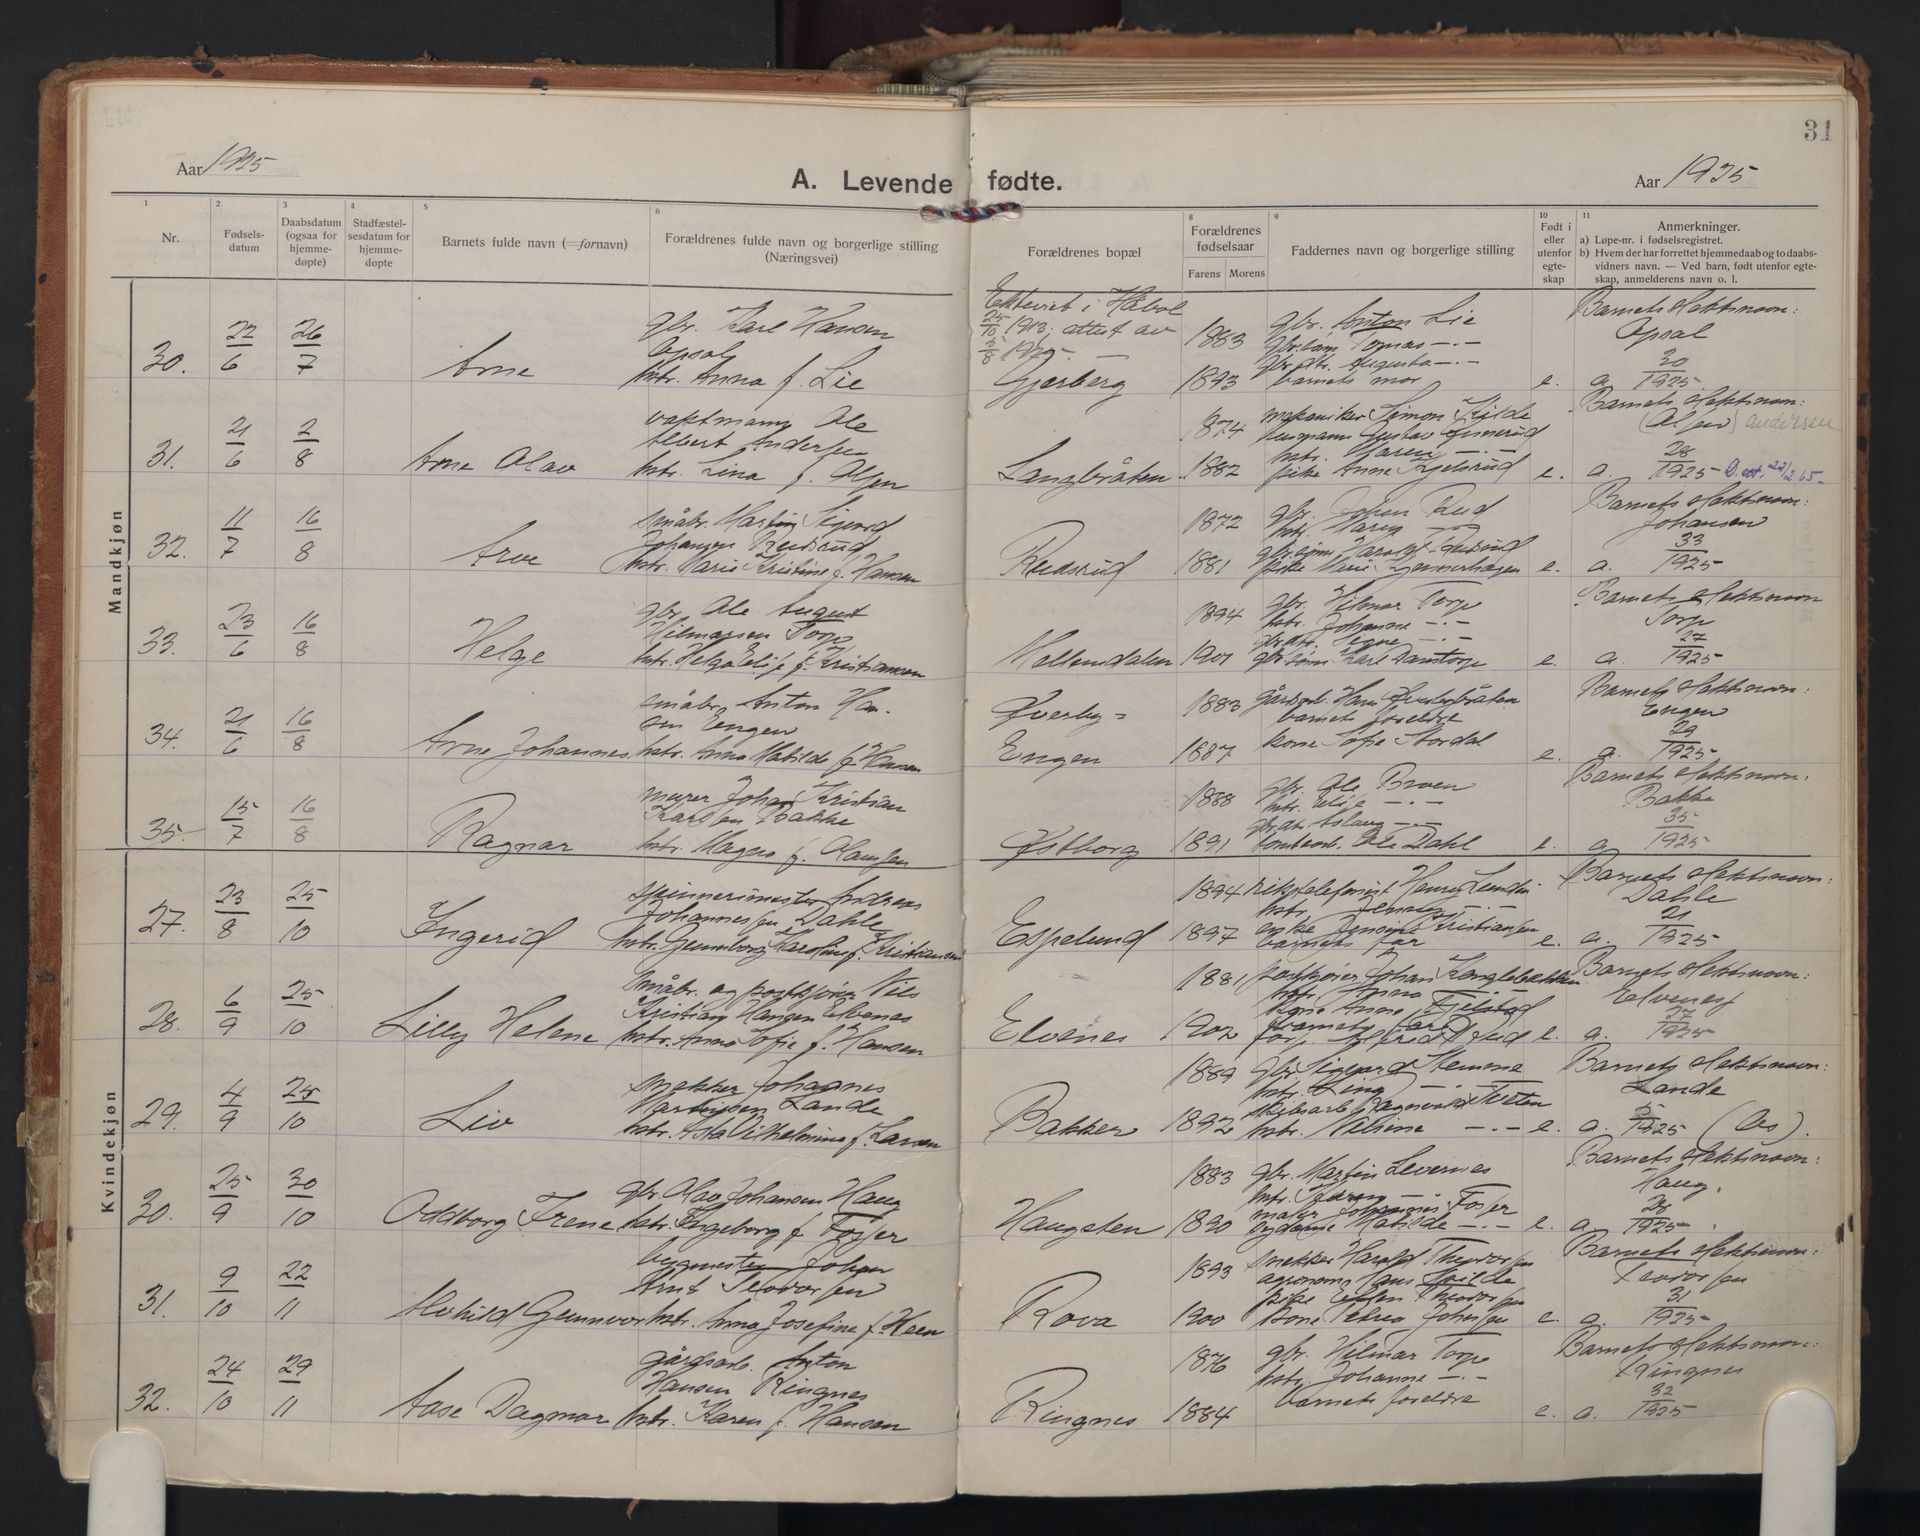 31
Aar 1925
A. Levende fødte.
Aar 1925
1
2
3
4
5
6
8
9
10
11
Nr.
Fødsels-
datum
Daabsdatum
(ogsaa for
hjemme-
døpte)
Stadfæstel-
sesdatum for
hjemme-
døpte
Barnets fulde navn (=fornavn)
Forældrenes fulde navn og borgerlige stilling
(Næringsvei)
Forældrenes bopæl
Forældrenes
fødselsaar
Farens Morens
Faddernes navn og borgerlige stilling
Født i
eller
utenfor
egte-
skap
Anmerkninger.
a) Løpe-nr. i fødselsregistret.
b) Hvem der har forrettet hjemmedaab og to daabs-
vidners navn. — Ved barn, født utenfor egte-
skap, anmelderens navn o. l.
Mandkjøn
30. 22/6 26/7 Arne
gbr. Karl Hansen
Opsal
hstr. Anna f. Lie
Ekteviet i Håbøl
25/10 1913; attest av
5/8 1925. —
Gjerberg
1883
1893
gbr. Anton Lie
gbr.sønn Tomas —·—
gbr.dtr. Augusta —·—
barnets mor
e.
Barnets slektsnavn:
Opsal
a. 30/1925.
31. 21/6 2/8 Arne Olav
vaktmann Ole
Albert Andersen
hstr. Lina f. Olsen
Langbråten
1874
1882
mekaniker Simon Kilde
hstr. Maren —·—
pike Anne Kjelsrud
e.
Barnets slektsnavn:
(Olsen) Andersen
a. 28/1925 D. att. 22/2 65
32. 11/7 16/8 Arve
småbr. Martin Sigurd
Johansen Rudsrud
hstr. Marie Kristine f. Hansen
Rudsrud
1872
1881
gbr. Johan Rud
e.
Barnets slektsnavn:
Johansen
a. 33/1925
33. 23/6 16/8 Helge
gbr. Ole August
Hilmarsen Torp
hstr. Helga Elise f. Kristiansen
Mellemdalen
1894
1901
gbr. Hilmar Torp
hstr. Johanne —·—
gbr.dtr. Signe —·—
gbr.sønn Karl Damtorp
e.
Barnets slektsnavn
Torp
a. 27/1925
34. 21/6 16/8 Arne Johannes
småbr. Anton Han-
sen Engen
hstr. Anna Matilde f. Hansen
Øverby-
Engen
1883
1887
barnets foreldre
kone Sofie Stordal
e.
Barnets slektsnavn:
Engen
a. 29/1925
35. 15/7 16/8 Ragnar
murer Johan Kristian
Karlsen Bakke
hstr. Magna f. Olausen
Østborg
1888
1891
gbr. Ole Broen
hstr. Elise —·—
gbr.dtr. Aslaug —·—
tomtearb. Ole Dahl
e.
Barnets slektsnavn:
Bakke
a. 35/1925
Kvindekjøn
27. 23/8 25/10 Ingerid
spinnerimester Andreas
Johannessen Dahle
hstr. Gunnborg Karoline f. Kristiansen
Espelund
1894
1897
hstr. Jenny —·—
enke Jensine Kristiansen
barnets far
e.
Barnets slektsnavn:
Dahle
a. 21/1925
28. 6/9 25/10 Lilly Helene
Småbr. og postkjører Nils
Kristian Hansen Elvenes
hstr. Anna Sofie f. Hansen
Elvenes
1881
1902
postkjører Johan Langlebekken
hstr. Anna
kone Anne Fjelstad
barnets far
e.
Barnets slektsnavn:
Elvenes
a. 27/1925
29. 4/9 25/10 Liv
snekker Johannes
Martinsen Lande
hstr. Asta Vilhelmine f. Larsen
Bakker
1889
1892
gbr. Sigurd Stemme
hstr. Lina —·—
hstr. Nilsine —·—
e.
Barnets slektsnavn:
Lande
a. 5/1925 (Ås).
30. 25/9 30/10 Oddborg Irene
gbr. Olav Johansen Haug
hstr. Ingeborg f. Fosser
Haugsten
1883
1890
gbr. Martin Levernes
maler Johannes Fosser
sydame Matilde —·—
e.
Barnets slektsnavn:
Haug.
a. 28/1925
31. 9/10 22/11 Alvhild Gunnvor
bygmester Johan
Arnt Teodorsen
hstr. Anna Josefine f. Heen
Rova
1893
1900
snekker Harald Theodorsen
agronom Hans Kilde
pike Ellen Theodorsen
kone Petrea Johnsen
e.
Barnets slektsnavn:
Teodorsen
a. 31/1925
32. 24/10 29/11 Aase Dagmar
gårdsarb. Anton
Hansen Ringnes
hstr. Karen f. Hansen
Ringnes
1876
1884
gbr. Hilmar Torp
hstr. Johanne —·—
barnets foreldre
e.
Barnets slektsnavn:
Ringnes
a. 32/1925